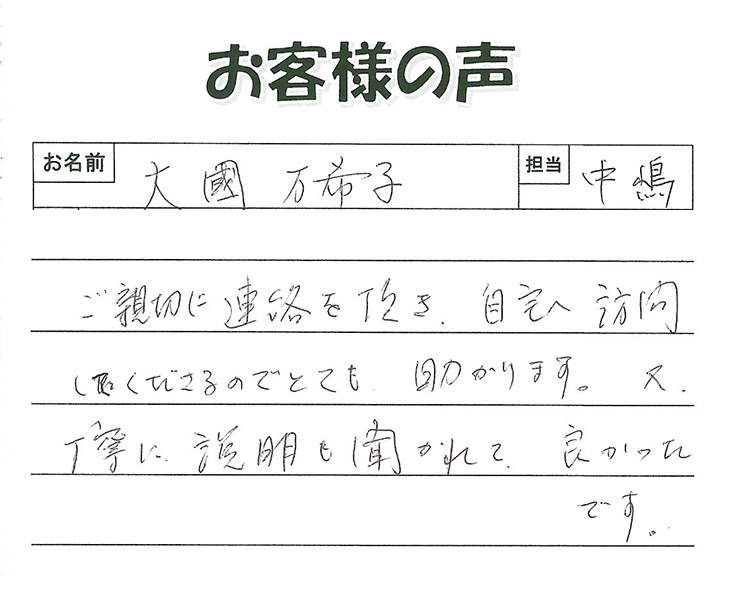 お客様の声
お名前 大國 万希子 担当 中嶋
ご親切に連絡を頂き、自宅へ訪問
してくださるのでとても、助かります。又、
丁寧に、説明も聞かれて、良かった
です。